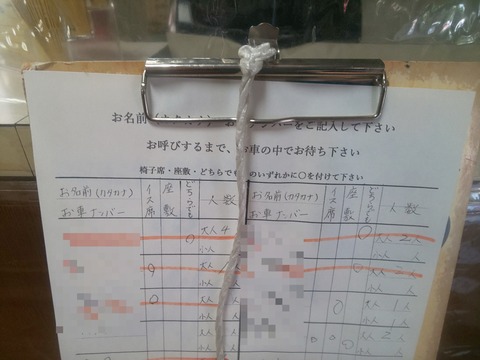 お名前(カタカナ) お ンバーをご記入して下さい
お呼びするまで、お車の中でお待ち下さい
椅子席・座敷・どちらでも のいずれかに○を付けて下さい
お名前(カタカナ) イス席 座敷 どちらでも 人数 お名前(カタカナ) イス席 座敷 どちらでも 人数
お車ナンバー お車ナンバー
○ 大人 4 ○ 大人 2人
小人 小人 人
○ 大人 ○ 大人 人
小人 小人 人
○ 大人 ○ 大人 1人
小人 小人 1人
大人 人 ○ ○ ○ 大人 2人
小人 人 小人 人